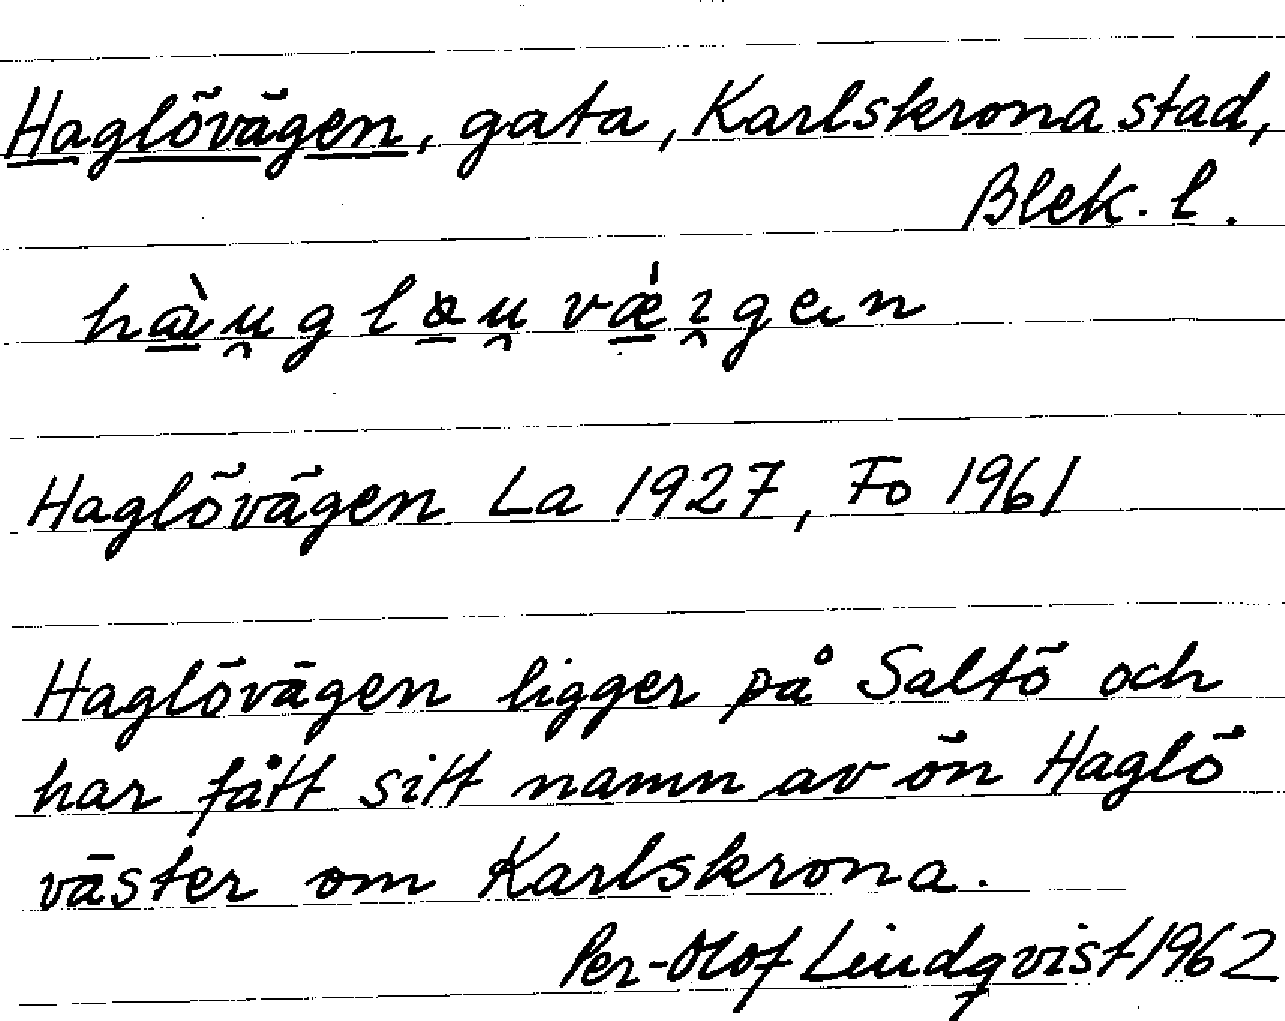 Haglövägen, gata, Karlskrona stad,
Blek. l.
hàu̯glau̯vǽı̯gen
Haglövägen La 1927, Fo 1961
Haglövägen ligger på Saltö och
har fått sitt namn av ön Haglö
väster om Karlskrona.
Per-Olof Lindqvist 1962